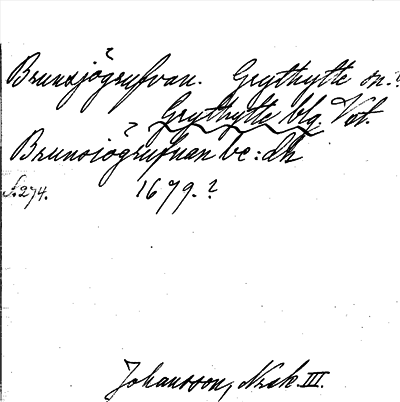 Brunsjögrufvan. Grythytte sn.?
Grythytte blg. Vstm.
Brunsiögrufvan be: dh
S. 274. 1679.?
Johansson, Nzsk III.